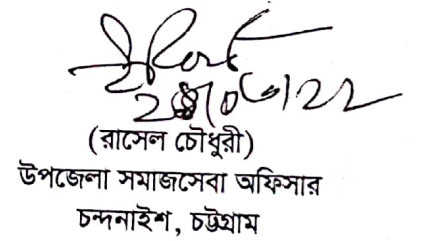 (রাসেল চৌধুরী)
উপজেলা সমাজসেবা অফিসার
চন্দনাইশ, চট্টগ্রাম